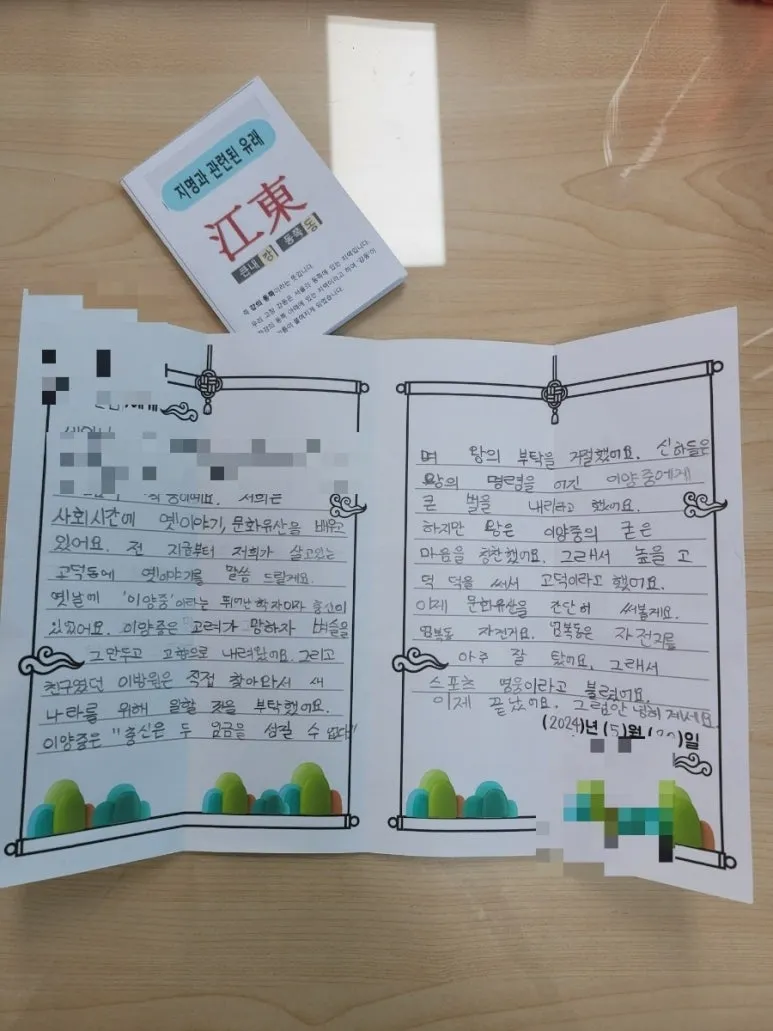 지명과 관련된 유래
江東
큰내 강 동쪽 동
즉 강의 동쪽이라는 뜻입니다.
우리 고장 강동은 서울의 동쪽에 있는 지역입니다.
한강의 동쪽 아래에 있는 지역이라고 하여 '강동'이
붙여지게 되었습니다.
저희는
사회시간에 옛이야기, 문화유산을 배우고
있어요. 전 지금부터 저희가 살고있는
고덕동에 옛이야기를 말씀 드릴게요.
옛날에 '이양중'이라는 뛰어난 학자이자 충신이
있었어요. 이양중은 고려가 망하자 벼슬을
그만두고 고향으로 내려왔어요. 그리고
친구였던 이방원은 직접 찾아와서 새
나라를 위해 일할 것을 부탁했어요.
이양중은 "충신은 두 임금을 섬길 수 없다"
며 왕의 부탁을 거절했어요. 신하들은
왕의 명령을 어긴 이양중에게
큰 벌을 내리라고 했어요.
하지만 왕은 이양중의 굳은
마음을 칭찬했어요. 그래서 높을 고
덕 덕을 써서 고덕이라고 했어요.
이제 문화유산을 간단히 써볼게요.
엄복동 자전거요. 엄복동은 자전거를
아주 잘 탔어요. 그래서
스포츠 영웅이라고 불렸어요.
이제 끝났어요. 그럼 안녕히 계세요
(2024)년 (5)월 ( )일